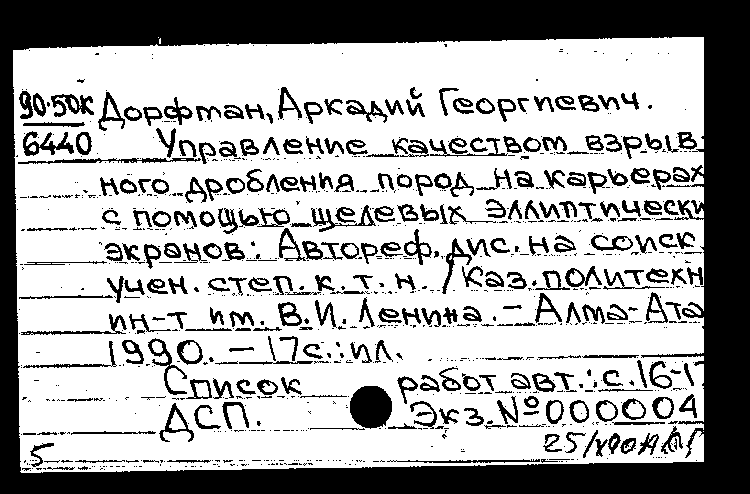 90-50к Дорфман, Аркадий Георгиевич.
6440 Управление качеством взрыв-
ного дробления пород на карьерах
с помощью щелевых эллиптически
экранов: Автореф. дис. на соиск.
учен. степ. к. т. н. / Каз. политехн
ин-т им. В.И. Ленина. - Алма-Ата
1990. - 17с.: ил.
Список работ авт.: с. 16-17
ДСП. Экз. № 000004
5